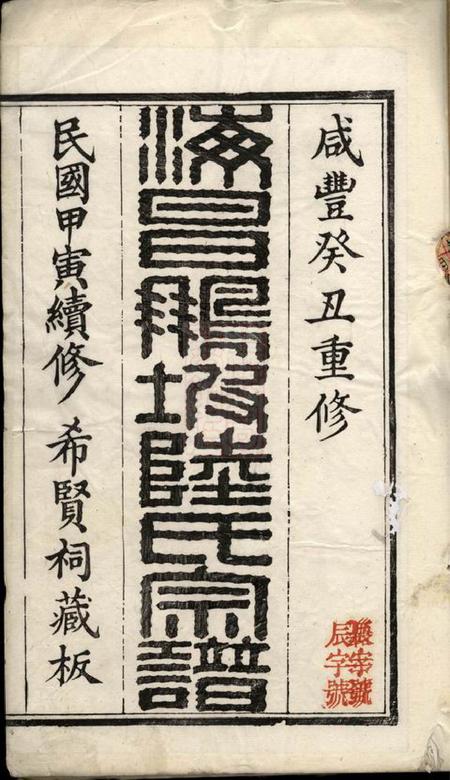 咸豐癸丑重修
海昌鵬坡陸氏宗譜
民國甲寅續修 希賢祠藏板
辰字號